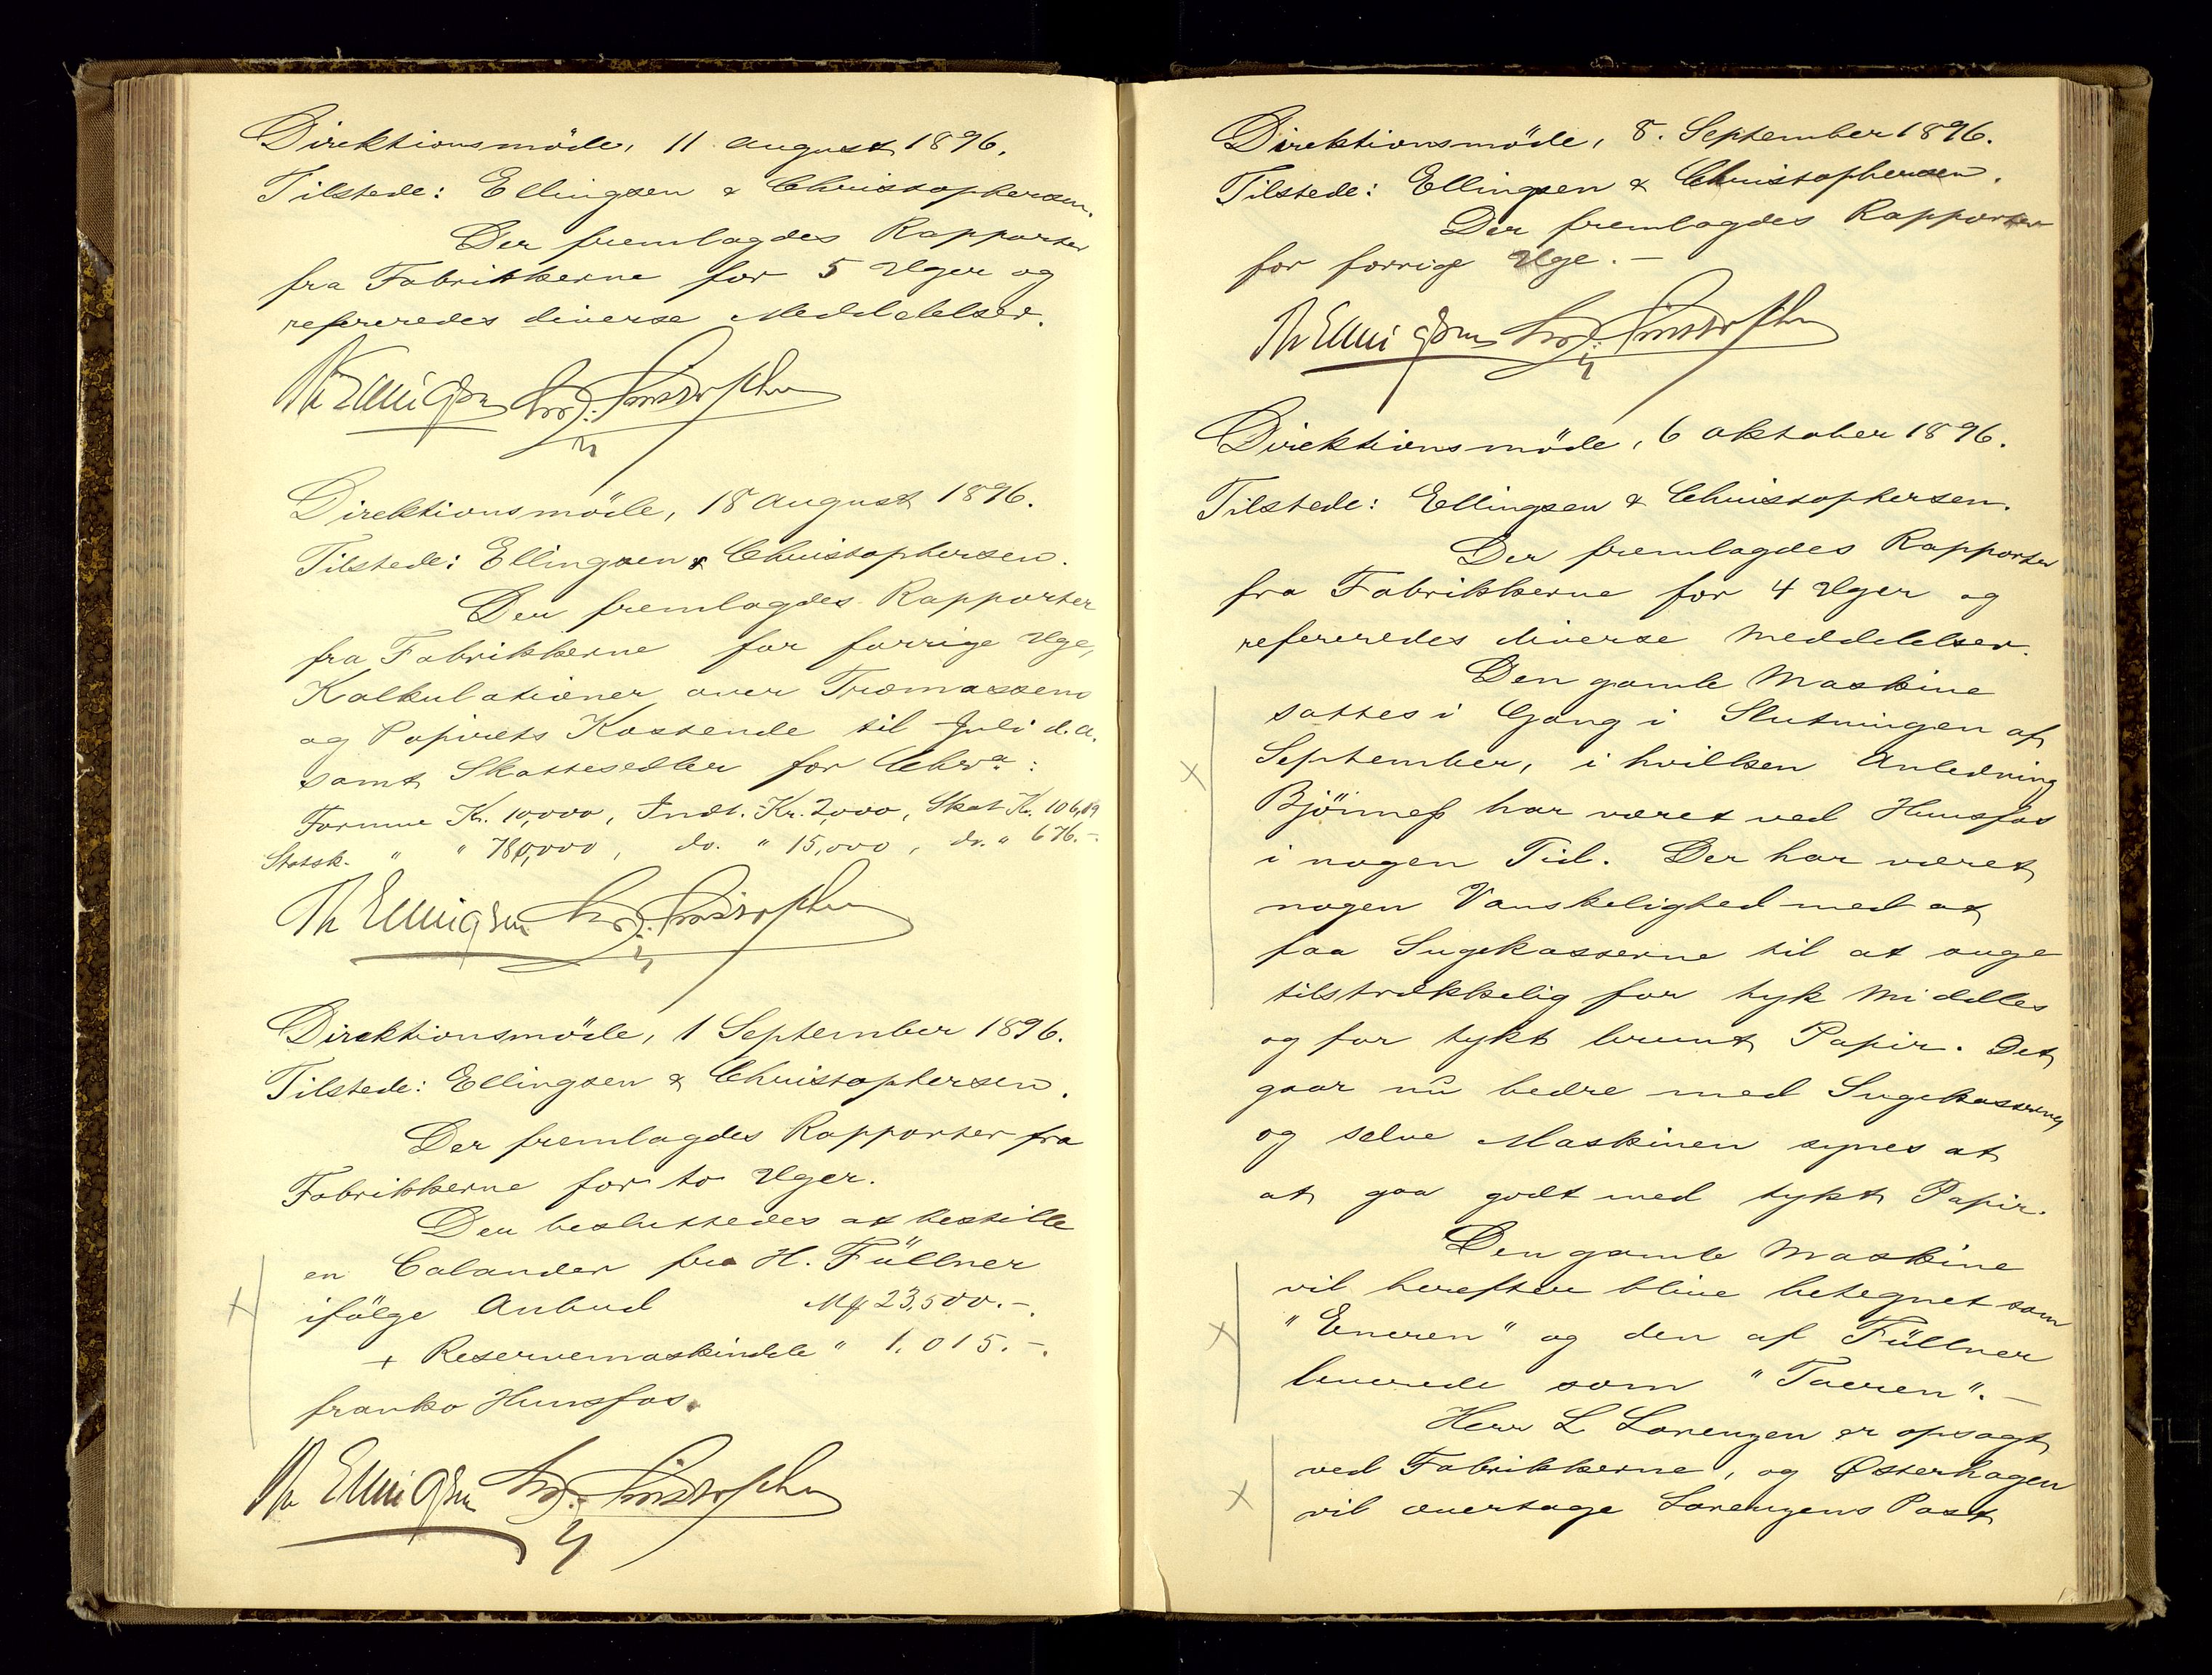 Direktionsmöde, 11 August 1896.
Tilstede: Ellingsen & Christophersen.
Der fremlagdes Rapporter
fra Fabrikkerne for 5 Uger og
refereredes diverse Meddelelser.
Th Ellingsen Chr. Christophersen
Direktionsmöde, 18 August 1896.
Tilstede: Ellingsen & Christophersen.
Der fremlagdes Rapporter
fra Fabrikkerne for forrige Uge,
Kalkulationer over Træmassens
og Papirets Kostende til Juli d.a.
samt Skattesedler for Chra:
Formue Kr. 10,000, Indt. Kr. 2,000, Skat Kr. 106,89
Statssk. " " 780,000, do. " 15,000, do. " 676.-
Th Ellingsen Chr. Christophersen
Direktionsmöde, 1 September 1896.
Tilstede: Ellingsen & Christophersen.
Der fremlagdes Rapporter fra
Fabrikkerne for to Uger.
Der besluttedes at bestille
en Calander fra H. Füllner
ifölge Anbud Mk 23,500.-
+ Reservemaskindele " 1,015.-.
franko Hunsfos.
Th Ellingsen Chr. Christophersen
Direktionsmöde, 8. September 1896.
Tilstede: Ellingsen & Christophersen.
Der fremlagdes Rapporter
for forrige Uge. -
Th Ellingsen Chr. Christophersen
Direktionsmöde, 6 Oktober 1896.
Tilstede: Ellingsen & Christophersen.
Der fremlagdes Rapporter
fra Fabrikkerne for 4 Uger og
refereredes diverse Meddelelser.
Den gamle Maskine
sattes i Gang i Slutningen af
September, i hvilken Anledning
har været ved Hunsfos
i nogen Tid. Der har været
nogen Vanskelighed med at
faa Sugekasserne til at suge
tilstrækkelig for tyk Middles
og for tykt brunt Papir. Det
gaar nu bedre med Sugekasserne
og selve Maskinen synes at
at gaa godt med tykt Papir.
Den gamle Maskine
vil herefter blive betegnet som
"Eneren" og den af Füllner
leverede som "Toeren". -
Herr L Lorenzen er opsagt
ved Fabrikkerne, og Østerhagen
vil overtage Lorenzens Post